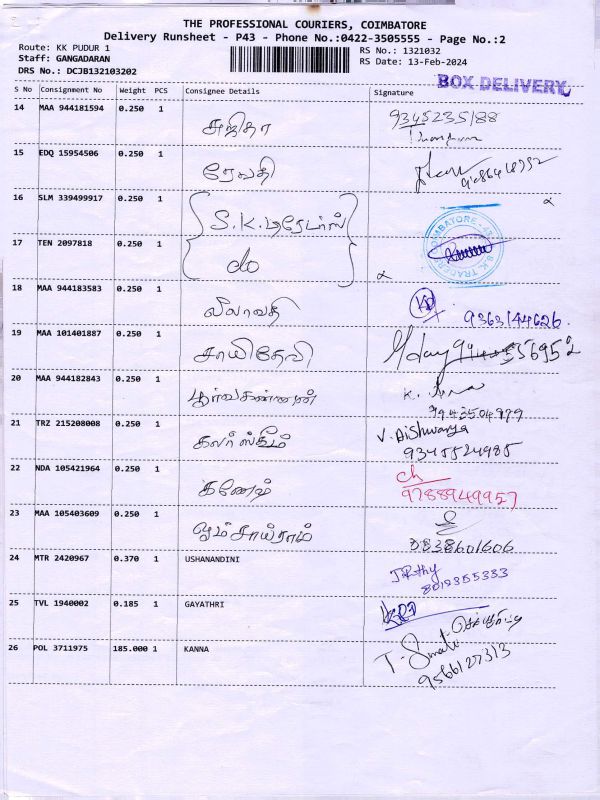 THE PROFESSIONAL COURIERS, COIMBATORE
Delivery Runsheet - P43 - Phone No.:0422-3505555 - Page No.:2
Route: KK PUDUR 1
RS No.: 1321032
Staff: GANGADARAN
RS Date: 13-Feb-2024
DRS No.: DCJB132103202
BOX DELIVERY
S No Consignment No Weight PCS Consignee Details Signature
14 MAA 944181594 0.250 1
சுஜிதா
9345235188
15 EDQ 15954506 0.250 1
ரேவதி
16 SLM 339499917 0.250 1
S.K. டிரேடர்ஸ்
17 TEN 2097818 0.250 1
do
COIMBATORE - 43 S.K. TRADERS
18 MAA 944183583 0.250 1
லீலாவதி
9363144626.
19 MAA 101401887 0.250 1
சாயிதேவி
20 MAA 944182843 0.250 1
K.
7943504979
21 TRZ 215208008 0.250 1
V. Aishwarya
கலர்ஸ்கீம்
9345524985
22 NDA 105421964 0.250 1
கணேஷ்
ch
9788949957
23 MAA 105403609 0.250 1
ஓம்சாய்ராம்
8838601606
24 MTR 2420967 0.370 1 USHANANDINI
8019355333
25 TVL 1940002 0.185 1 GAYATHRI
26 POL 3711975 185.000 1 KANNA
T.
9566127313